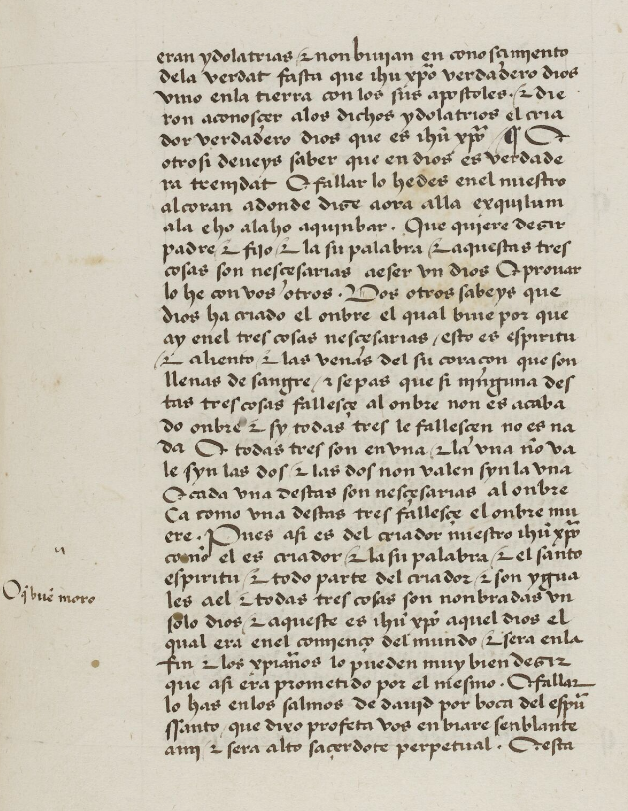 eran ydolatrias ⁊ non biuian en conosçimiento
dela verdat fasta que ihu xpo verdadero dios
vino enla tierra con los sus apostoles · ⁊ die
ron aconosçer alos dichos ydolatrios el cria
dor verdadero dios que es ihu xpo ¶ E
otrosi deueys saber que en dios es verdade
ra trenidat E fallar lo hedes enel nuestro
alcoran adonde dize aora alla exquilum
ala eho alaho aquinbar · Que quiere dezir
padre ⁊ fijo ⁊ la su palabra ⁊ aquestas tres
cosas son nesçesarias aeser vn dios E prouar
lo he con vos otros · Vos otros sabeys que
dios ha criado el onbre el qual biue por que
ay enel tres cosas nesçesarias / esto es espiritu
⁊ aliento ⁊ las venas del su coraçon que son
llenas de sangre / ⁊ sepas que si ninguna des
tas tres cosas fallesçe al onbre non es acaba
do onbre ⁊ sy todas tres le fallesçen no es na
da E todas tres son en vna ⁊ la vna no va
le syn las dos ⁊ las dos non valen syn la vna
E cada vna destas son nesçesarias al onbre
Ca como vna destas tres fallesçe el onbre mu
ere · Pues asi es del criador nuestro ihu xpo
como el es criador ⁊ la su palabra ⁊ el santo
espiritu ⁊ todo parte del criador ⁊ son ygua
les ael ⁊ todas tres cosas son nonbradas vn
solo dios ⁊ aqueste es ihu xpo aquel dios el
qual era enel comienço del mundo ⁊ sera enla
fin ⁊ los xpianos lo pueden muy bien dezir
que asi era prometido por el mesmo · E fallar
lo has enlos salmos de dauid por boca del espu
santo que dixo profeta vos enbiare senblante
ami ⁊ sera alto saçerdote perpetual · E esta
O q bue moro